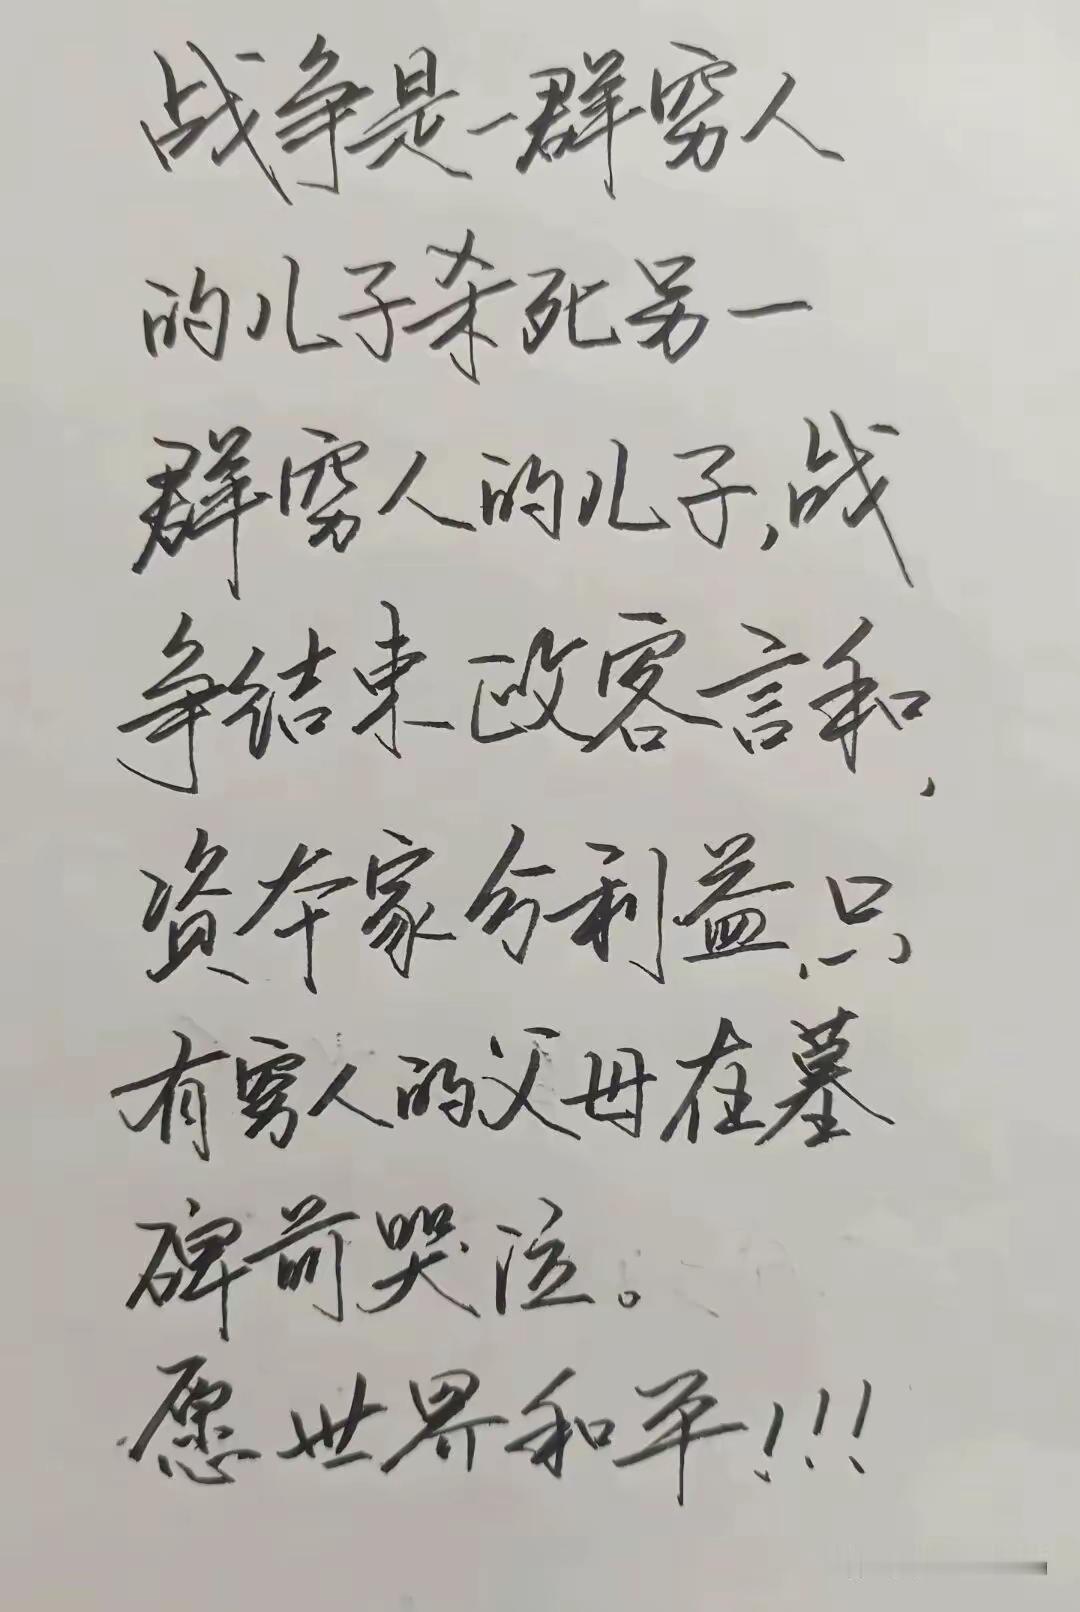 战争是一群穷人
的儿子杀死另一
群穷人的儿子,战
争结束政客言和,
資本家分利益,只
有穷人的父母在墓
碑前哭泣。
愿世界和平!!!